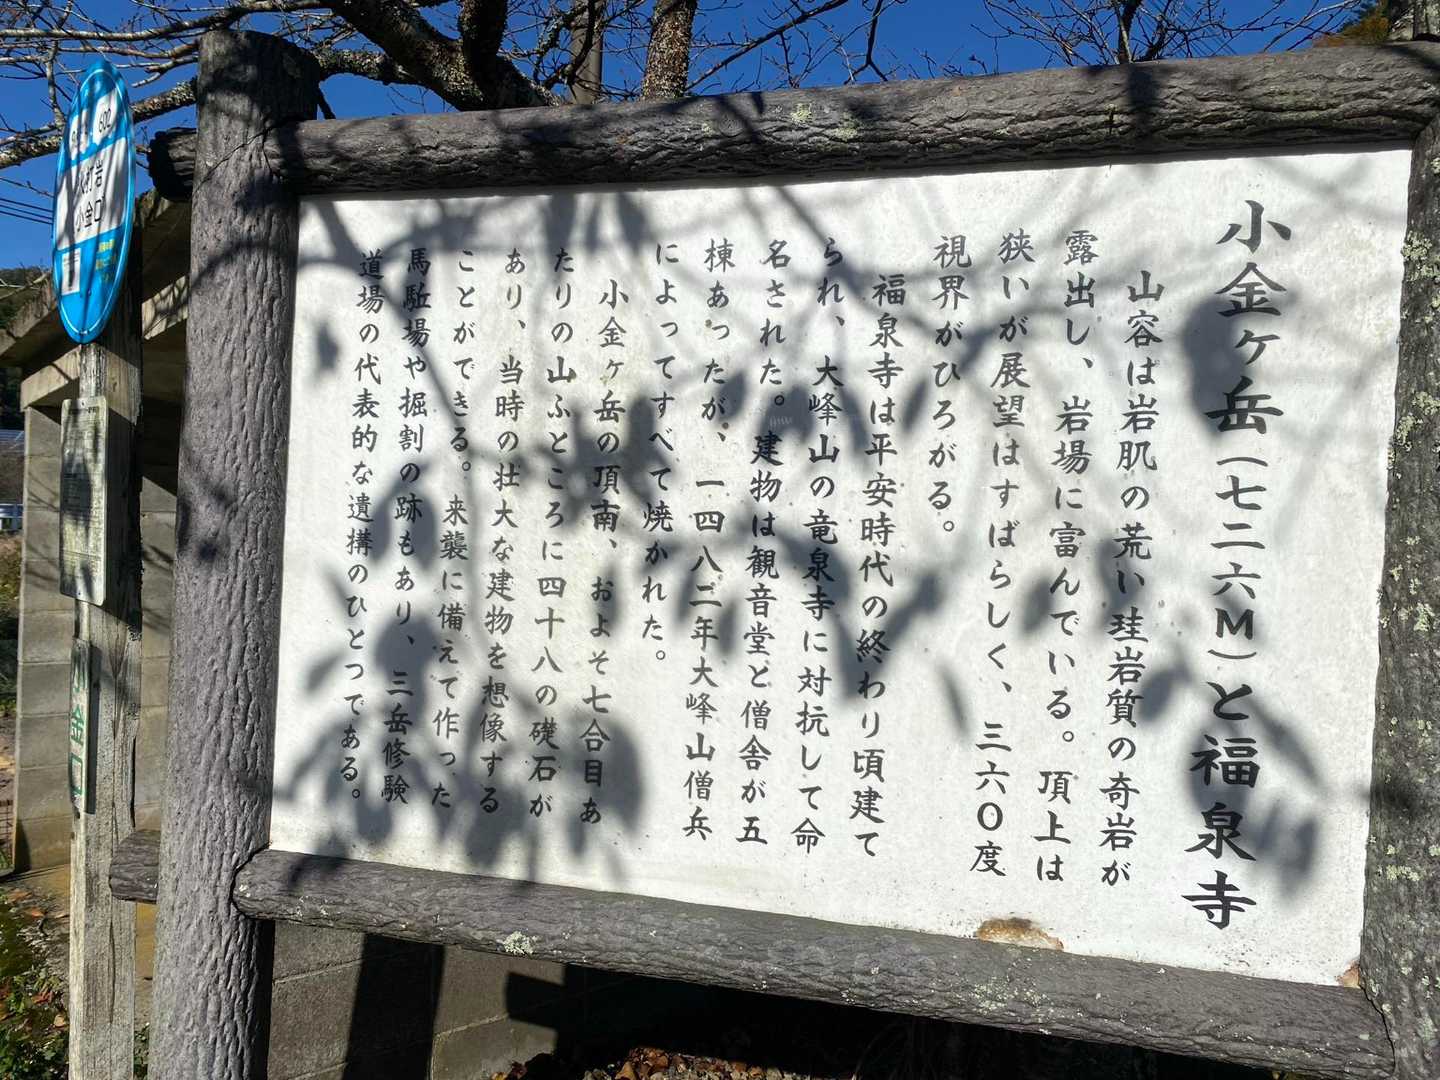 小金ヶ岳（七二六M）と福泉寺
山容は岩肌の荒い珪岩質の奇岩が
露出し、岩場に富んでいる。頂上は
狭いが展望はすばらしく、三六〇度
視界がひろがる。
福泉寺は平安時代の終わり頃建て
られ、大峰山の竜泉寺に対抗して命
名された。建物は観音堂と僧舎が五
棟あったが、一四八二年大峰山僧兵
によってすべて焼かれた。
小金ヶ岳の頂南、およそ七合目あ
たりの山ふところに四十八の礎石が
あり、当時の壮大な建物を想像する
ことができる。来襲に備えて作った
馬駈場や掘割の跡もあり、三岳修験
道場の代表的な遺構のひとつである。
火打岩
小金口
小金口